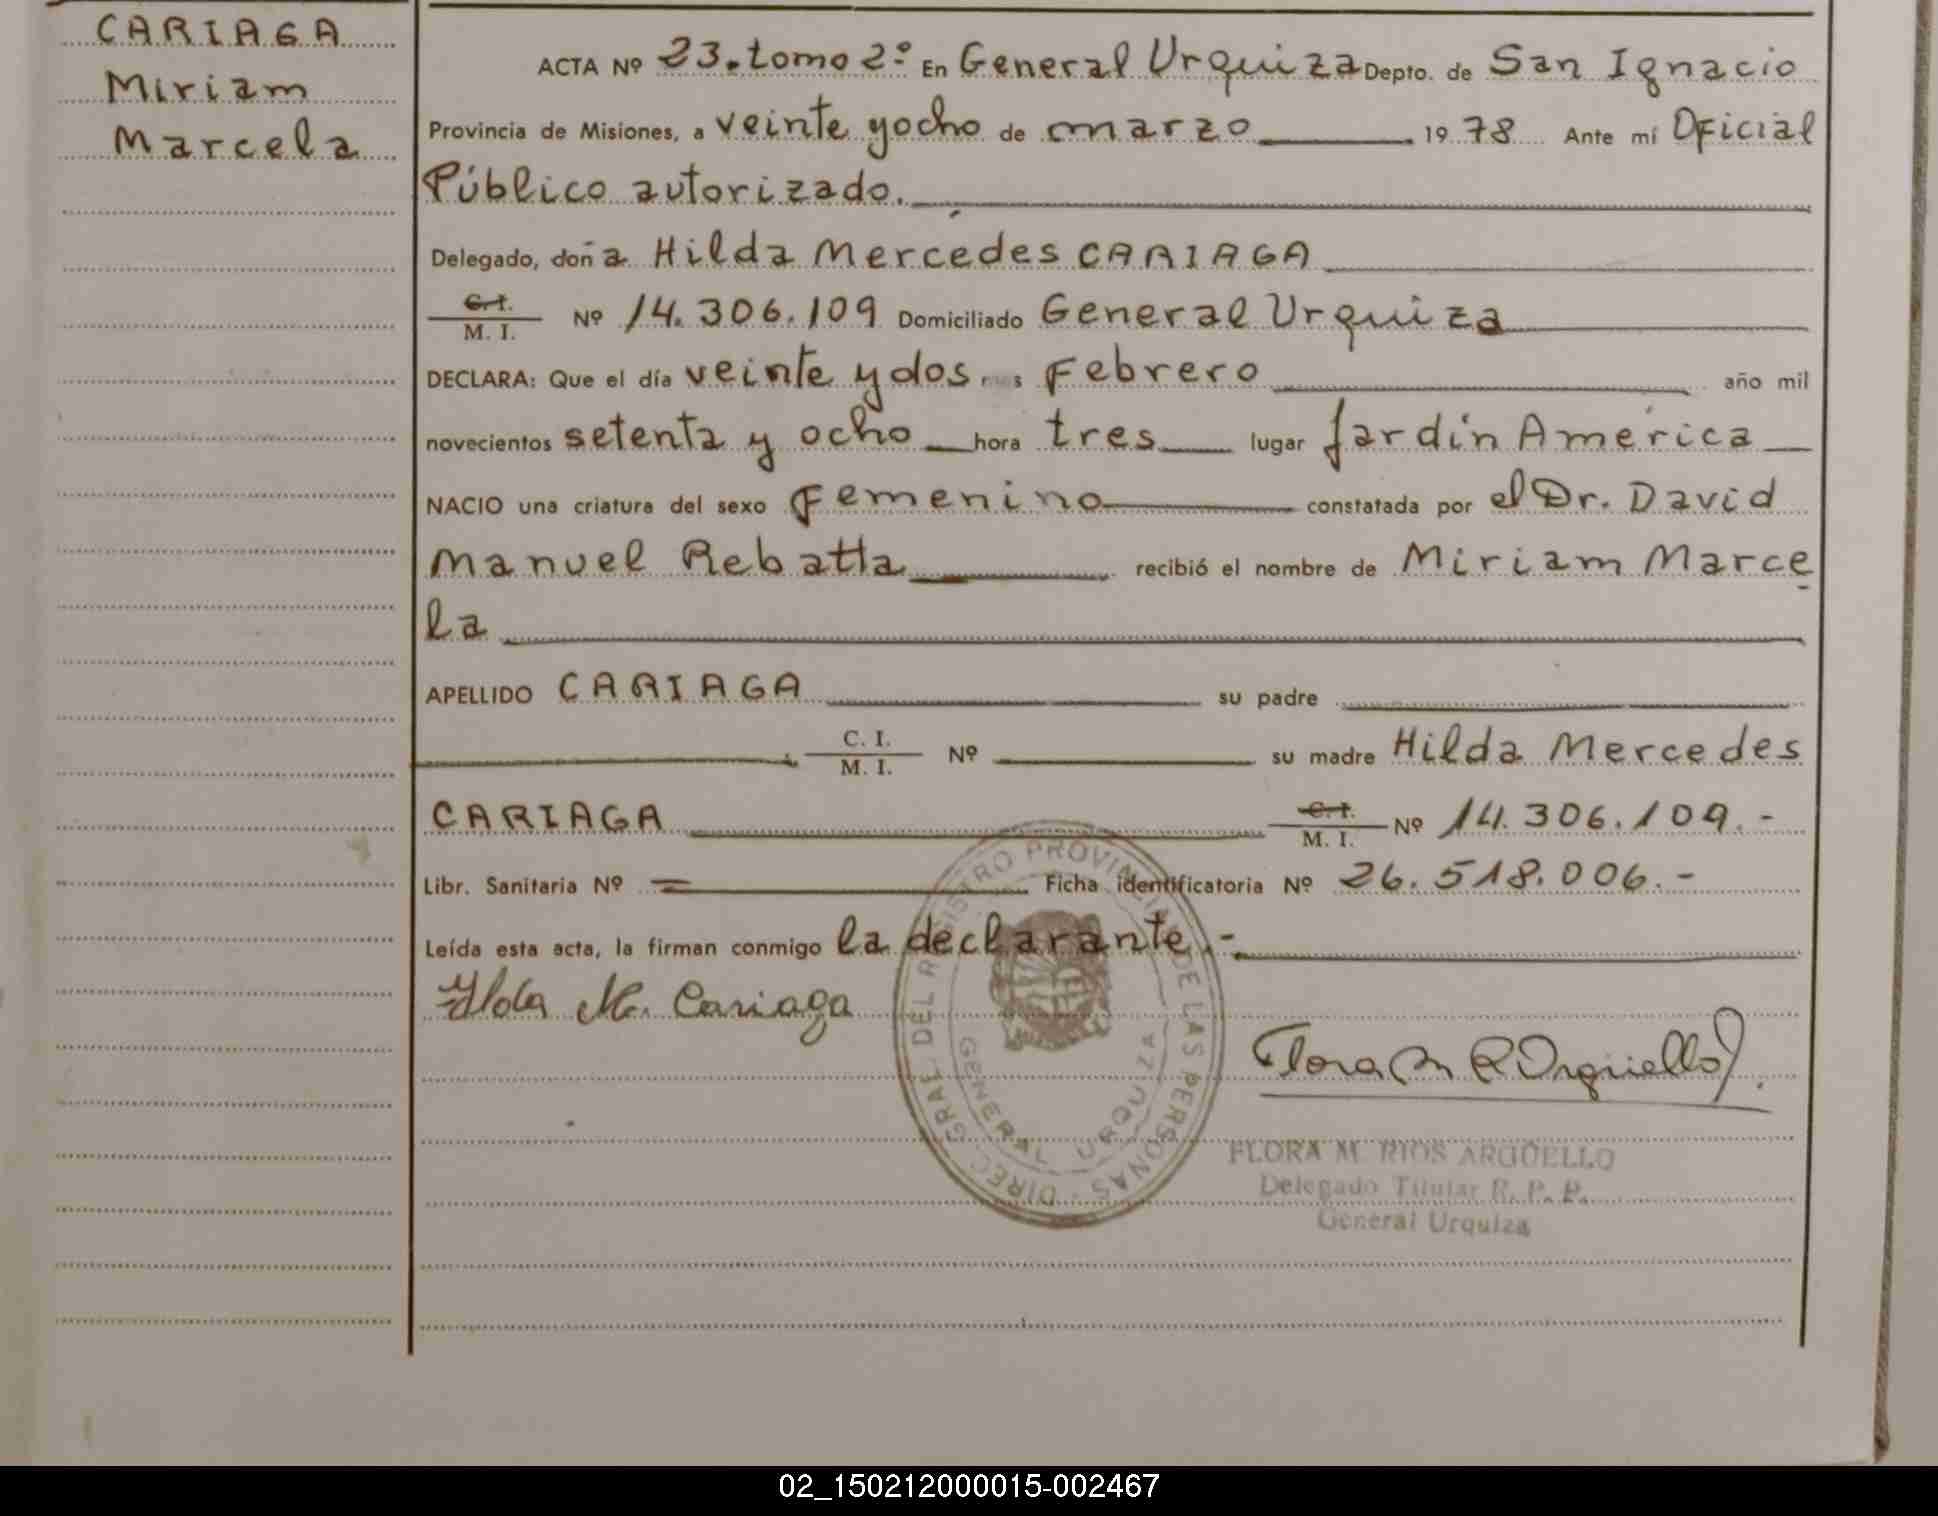 CARIAGA
Miriam
Marcela
ACTA Nº 23. tomo 2º En General Urquiza Depto. de San Ignacio
Provincia de Misiones, a veinte y ocho de marzo 19 78 Ante mí Oficial
Público autorizado.
Delegado, doña Hilda Mercedes CARIAGA
C.I.
M. I. Nº 14.306.109 Domiciliado General Urquiza
DECLARA: Que el día veinte y dos mes Febrero año mil
novecientos setenta y ocho hora tres lugar Jardín América
NACIO una criatura del sexo Femenino constatada por el Dr. David
Manuel Rebatta recibió el nombre de Miriam Marce
la
APELLIDO CARIAGA su padre
C. I.
M. I. Nº su madre Hilda Mercedes
CARIAGA C.I.
M. I. Nº 14.306.109.-
Libr. Sanitaria Nº = Ficha identificatoria Nº 26.518.006.-
Leída esta acta, la firman conmigo la declarante.-
Ilda M. Cariaga
DIREC. GRAL. DEL REGISTRO PROVINCIAL DE LAS PERSONAS
GENERAL URQUIZA
Flora M R Argüello
FLORA M. RIOS ARGÜELLO
Delegado Titular R. P. P.
General Urquiza
02_150212000015-002467